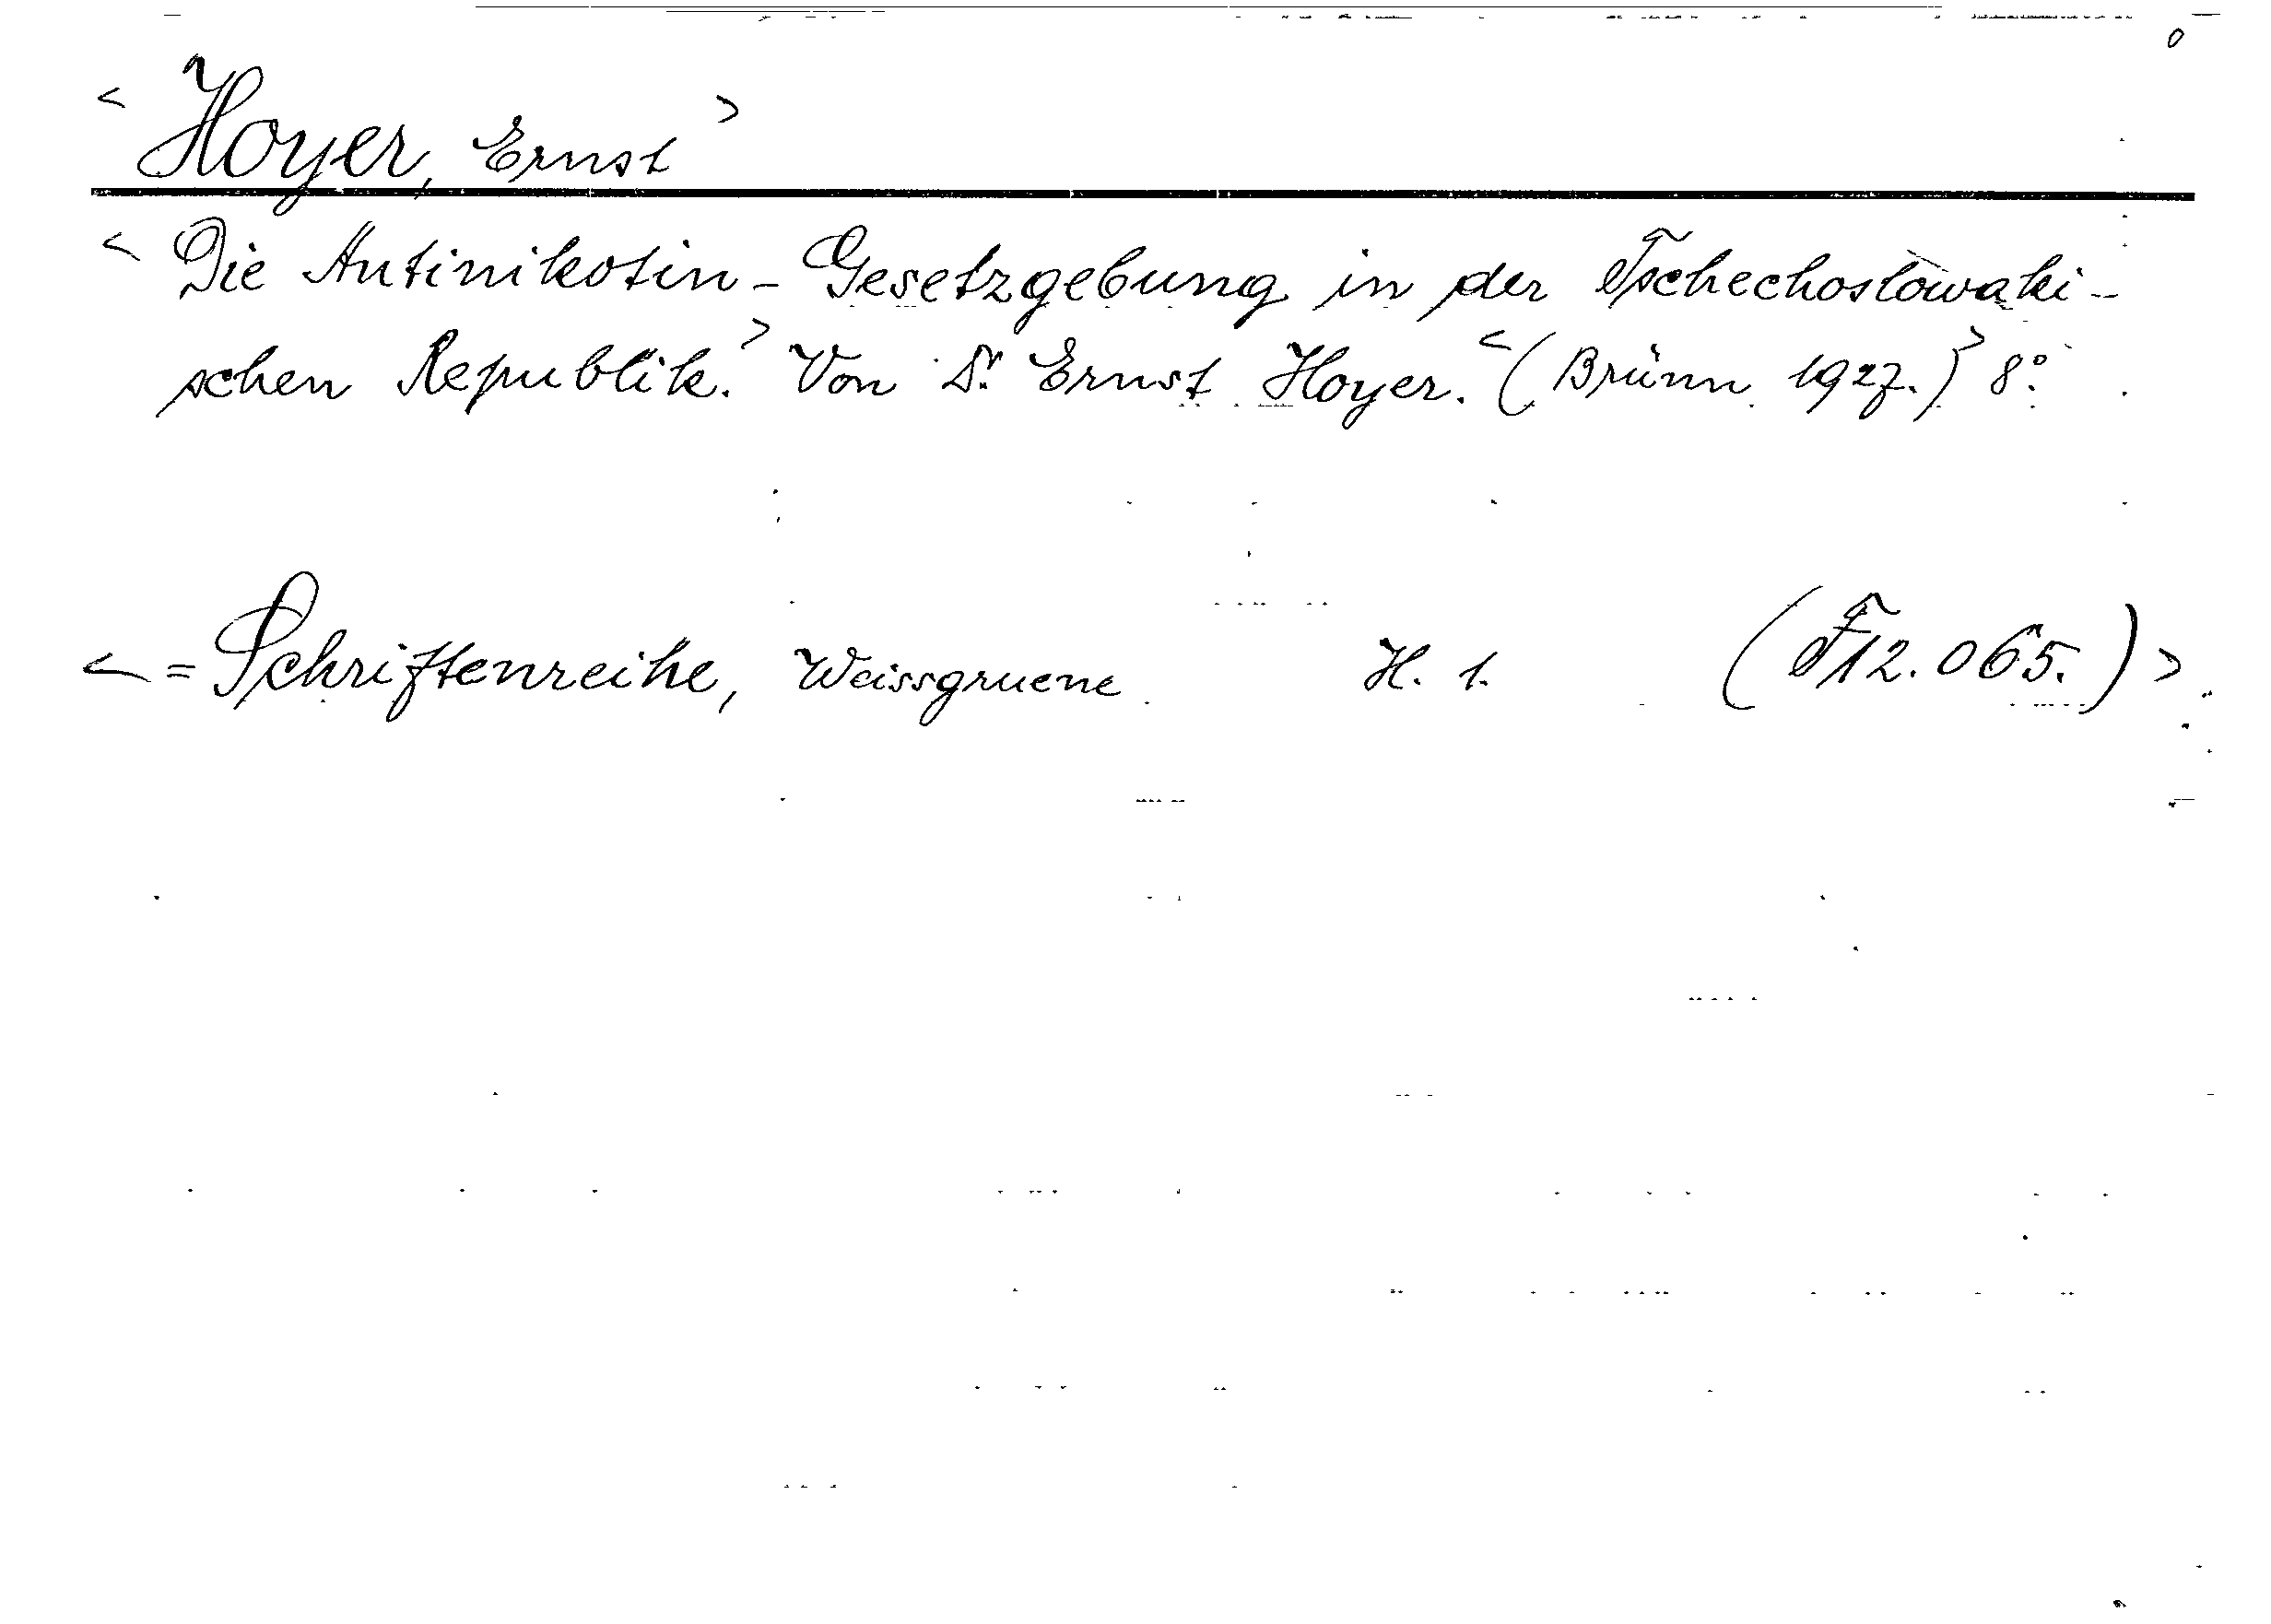 0
< Hoyer, Ernst >
< Die Antinikotin-Gesetzgebung in der Tschechoslowaki-
schen Republik.> Von Dr. Ernst Hoyer. <(Brünn 1927.)> 8°.
< = Schriftenreihe, Weissgruene H. 1. (F12.065.) >